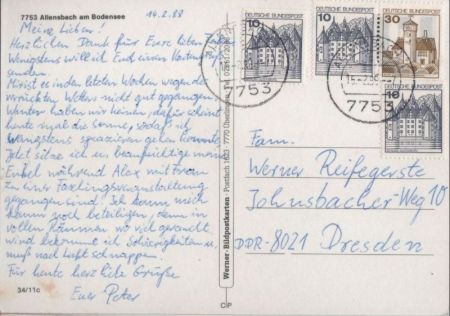 7753 Allensbach am Bodensee
14.2.88
Meine Lieben!
Herzlichen Dank für Eure lieben Zeilen.
Wenigstens will ich Euch einen Kartengruß
senden.
Mir ist es in den letzten Wochen wegen des
verrückten Wetters nicht gut gegangen.
Winter haben wir keinen, dafür scheint
heute mal die Sonne, sodaß ich
wenigstens spazieren gehen konnte.
Jetzt sitze ich und beaufsichtige meine
Enkel während Alex mit Frau
zu einer Faschingsveranstaltung
gegangen sind. Ich kann mich
kaum noch beteiligen, denn in
vollen Räumen wo viel geraucht
wird bekomme ich Schwierigkeiten u.
muß nach Luft schnappen.
Für heute herzliche Grüße
Euer Peter
34/11c
Werner-Bildpostkarten · Postfach 1625 · 7770 Überlingen
CP
DEUTSCHE BUNDESPOST
10
DEUTSCHE BUNDESPOST
10
DEUTSCHE BUNDESPOST
30
DEUTSCHE BUNDESPOST
10
7753
7753
Fam.
Werner Reifegerste
Johnsbacher-Weg 10
DDR-8021 Dresden